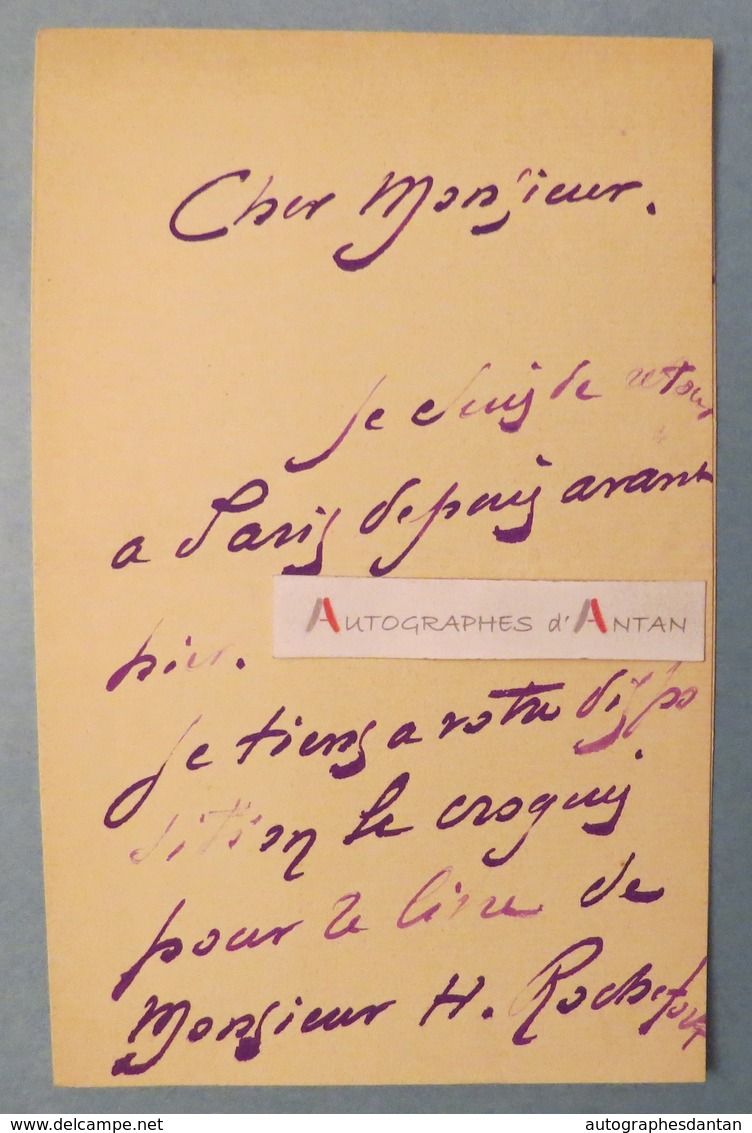 Cher Monsieur.
Je suis de retour
a Paris depuis avant
hier.
AUTOGRAPHES d'ANTAN
Je tiens a votre dispo
sition le croquis
pour le livre de
Monsieur H. Rochefort
delcampe.net
autographesdantan